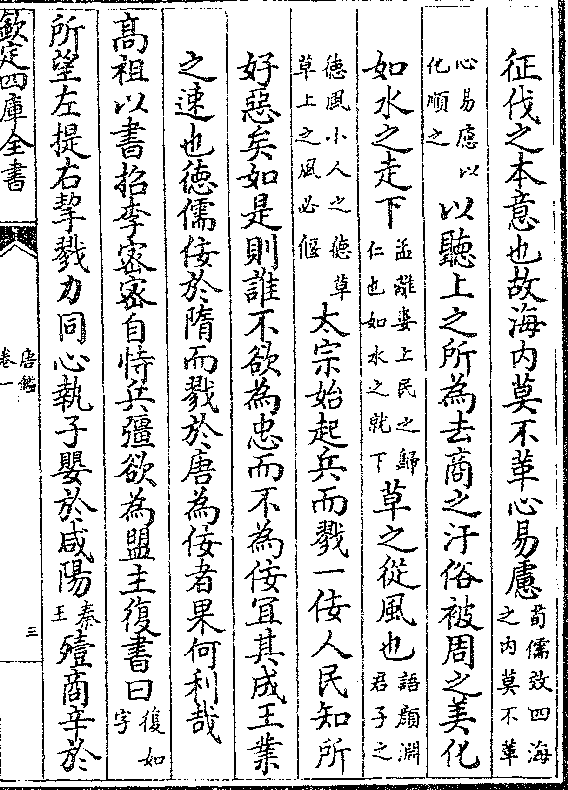 征伐之本意也故海内莫不革心易慮荀儒效四海之内莫不革
心易慮以化順之以聽上之所為去商之汙俗被周之美化
如水之走下孟離婁上民之歸仁也如水之就下草之從風也語顔淵君子之
徳風小人之徳草草上之風必偃太宗始起兵而戮一佞人民知所
好惡矣如是則誰不欲為忠而不為佞冝其成王業
之速也徳儒佞於隋而戮於唐為佞者果何利哉
髙祖以書招李密密自恃兵彊欲為盟主復書曰復如字
所望左提右挈戮力同心執子嬰於咸陽秦王殪商辛於
欽定四庫全書
唐鑑
卷一
三